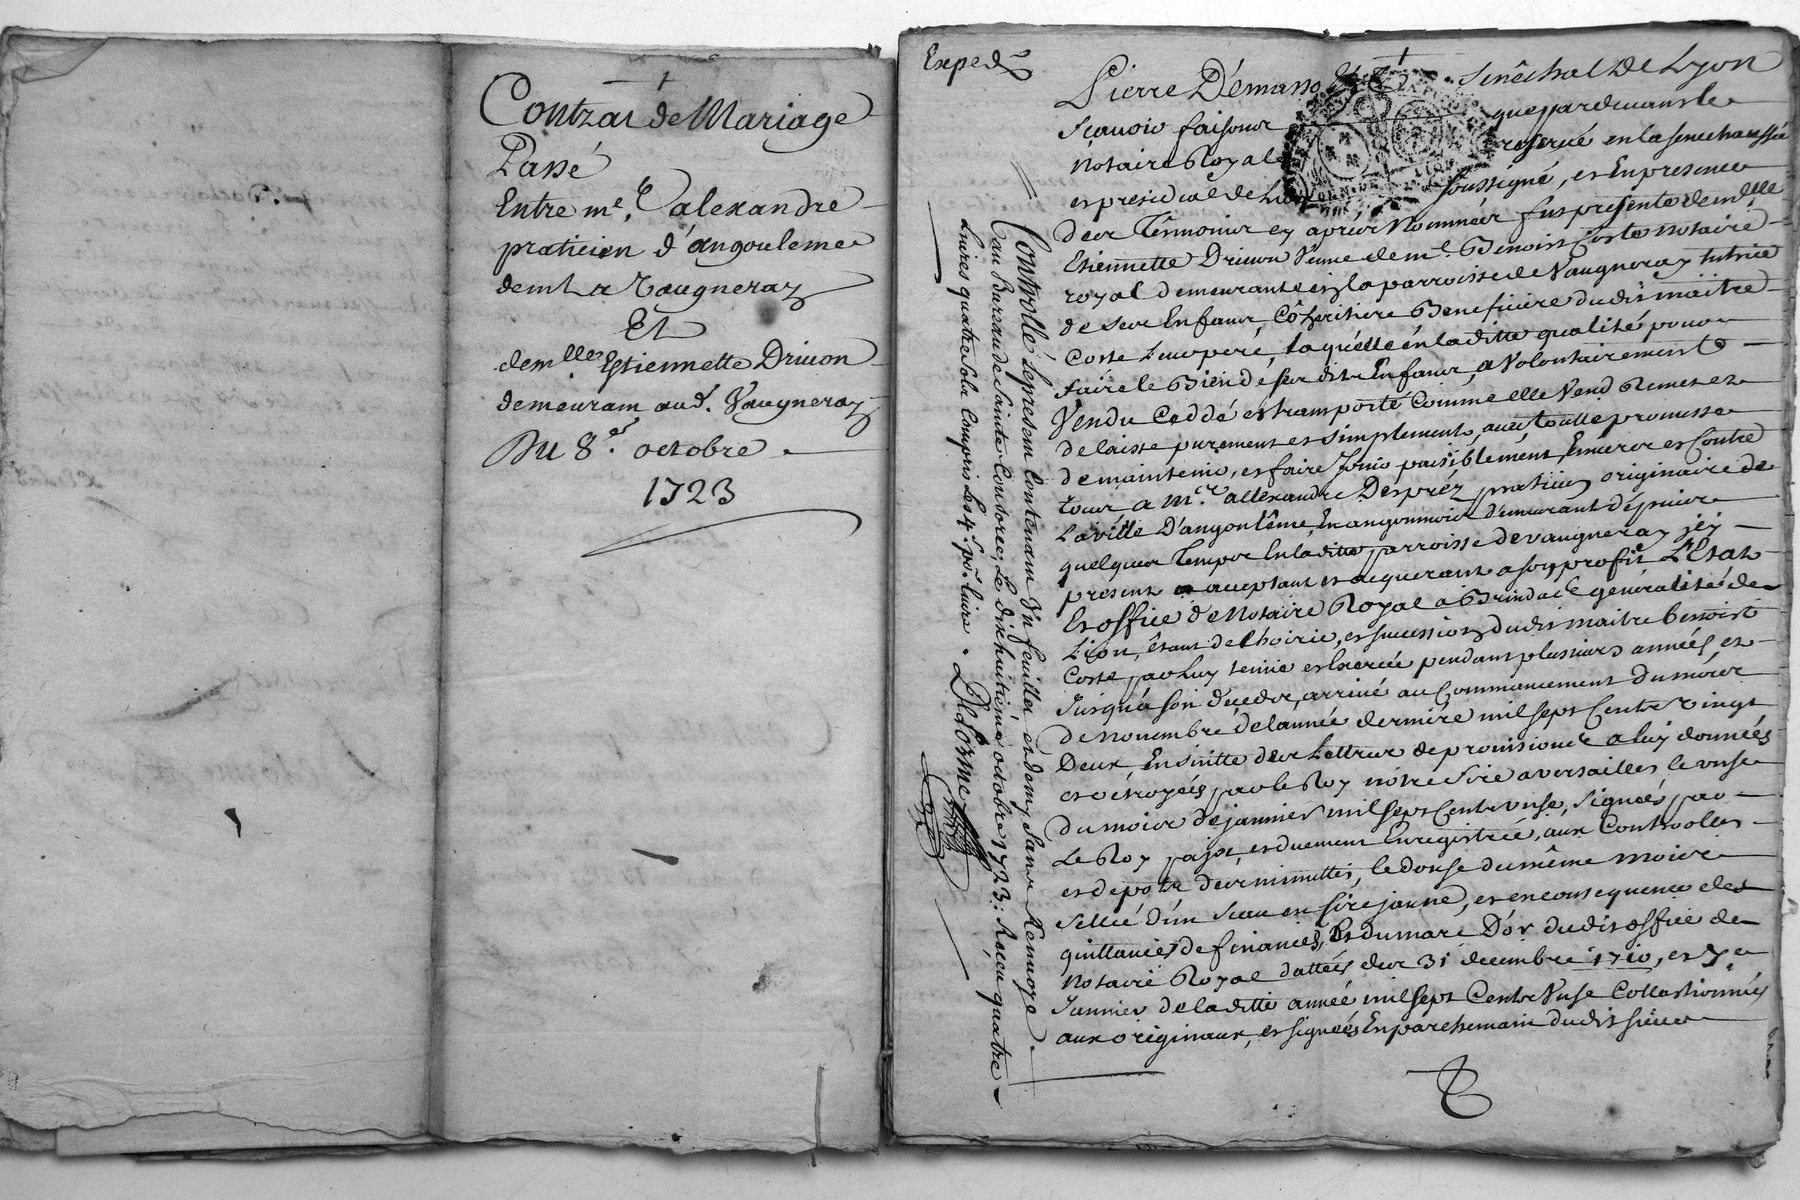 Contrat de Mariage
Passé
Entre me. alexandre
praticien d'angouleme
demt a Vaugneray
Et
demlle Estiennette Drivon
demeurant aud. Vaugneray
Du 8e. octobre
1723
Exped
Pierre Démasso Senêchal De Lyon
Scavoir faisons que pardevant le
Notaire Royal reservé en la senechaussée
et presidial de Lyon soussigné, et En presence
des Témoins cy aprés Nommés fut presente demlle
Estiennette Drivon Veuve de me. Benoist Coste notaire
royal demeurante en la parroisse de Vaugneray tutrice
de ses Enfans, Cohéritiere Beneficiere dudit maitre
Coste Leur peré, laquelle en la ditte qualité pour
faire le Bien de ses dits Enfans, a Volontairement
Vendu Ceddé et transporté Comme elle Vend Remet et
delaisse purement et simplement, avec toutte promesse
de maintenir, et faire Jouir paisiblement, Envers et Contre
tous a Me. allexandre Desprez praticien originaire de
La ville D'angoulême, En angoumois demeurant dépuis
quelques Temps En la ditte parroisse de vaugneray icy
present acceptant et acquerant a son profit L'Estat
Et office de Notaire Royal a Brindas generalité de
Lion, étant de l'hoirie, et succession dudit maitre benoist
Coste par Luy tenue et Exercée pendant plusieurs années, et
Jusqu'a son décedz, arrivé au Commancement du mois
de novembre de l'année derniére mil sept Cents vingt
Deux, En suitte des Lettres de provisions a luy données
et octroyées par le Roy nôtre Sire a versailles, le unse
du mois de janvier mil sept Cents unse, signées par
Le Roy pajot, et duement Enregistrée, aux Controolles
et depots des minuttes, le douse du même mois
Sellée d'un sceau en sire jaune, et en consequence des
quittances de finances, Et du marc D'or dudit office de
Notaire Royal dattées des 31 decembre 1710, et 7e
Janvier de la ditte année mil sept Cents Unse Collationnées
aux originaux, et signées En parchemain dudit sieur
Controllé Le present Contenant Un feuillet et demy Sans Renvoye
au Bureau de Sainte Consorce, Le dixhuitiéme octobre 1723: Reçeu quatre
Livres quatre sols Compris Les 4s. pr. Livre. Delorme